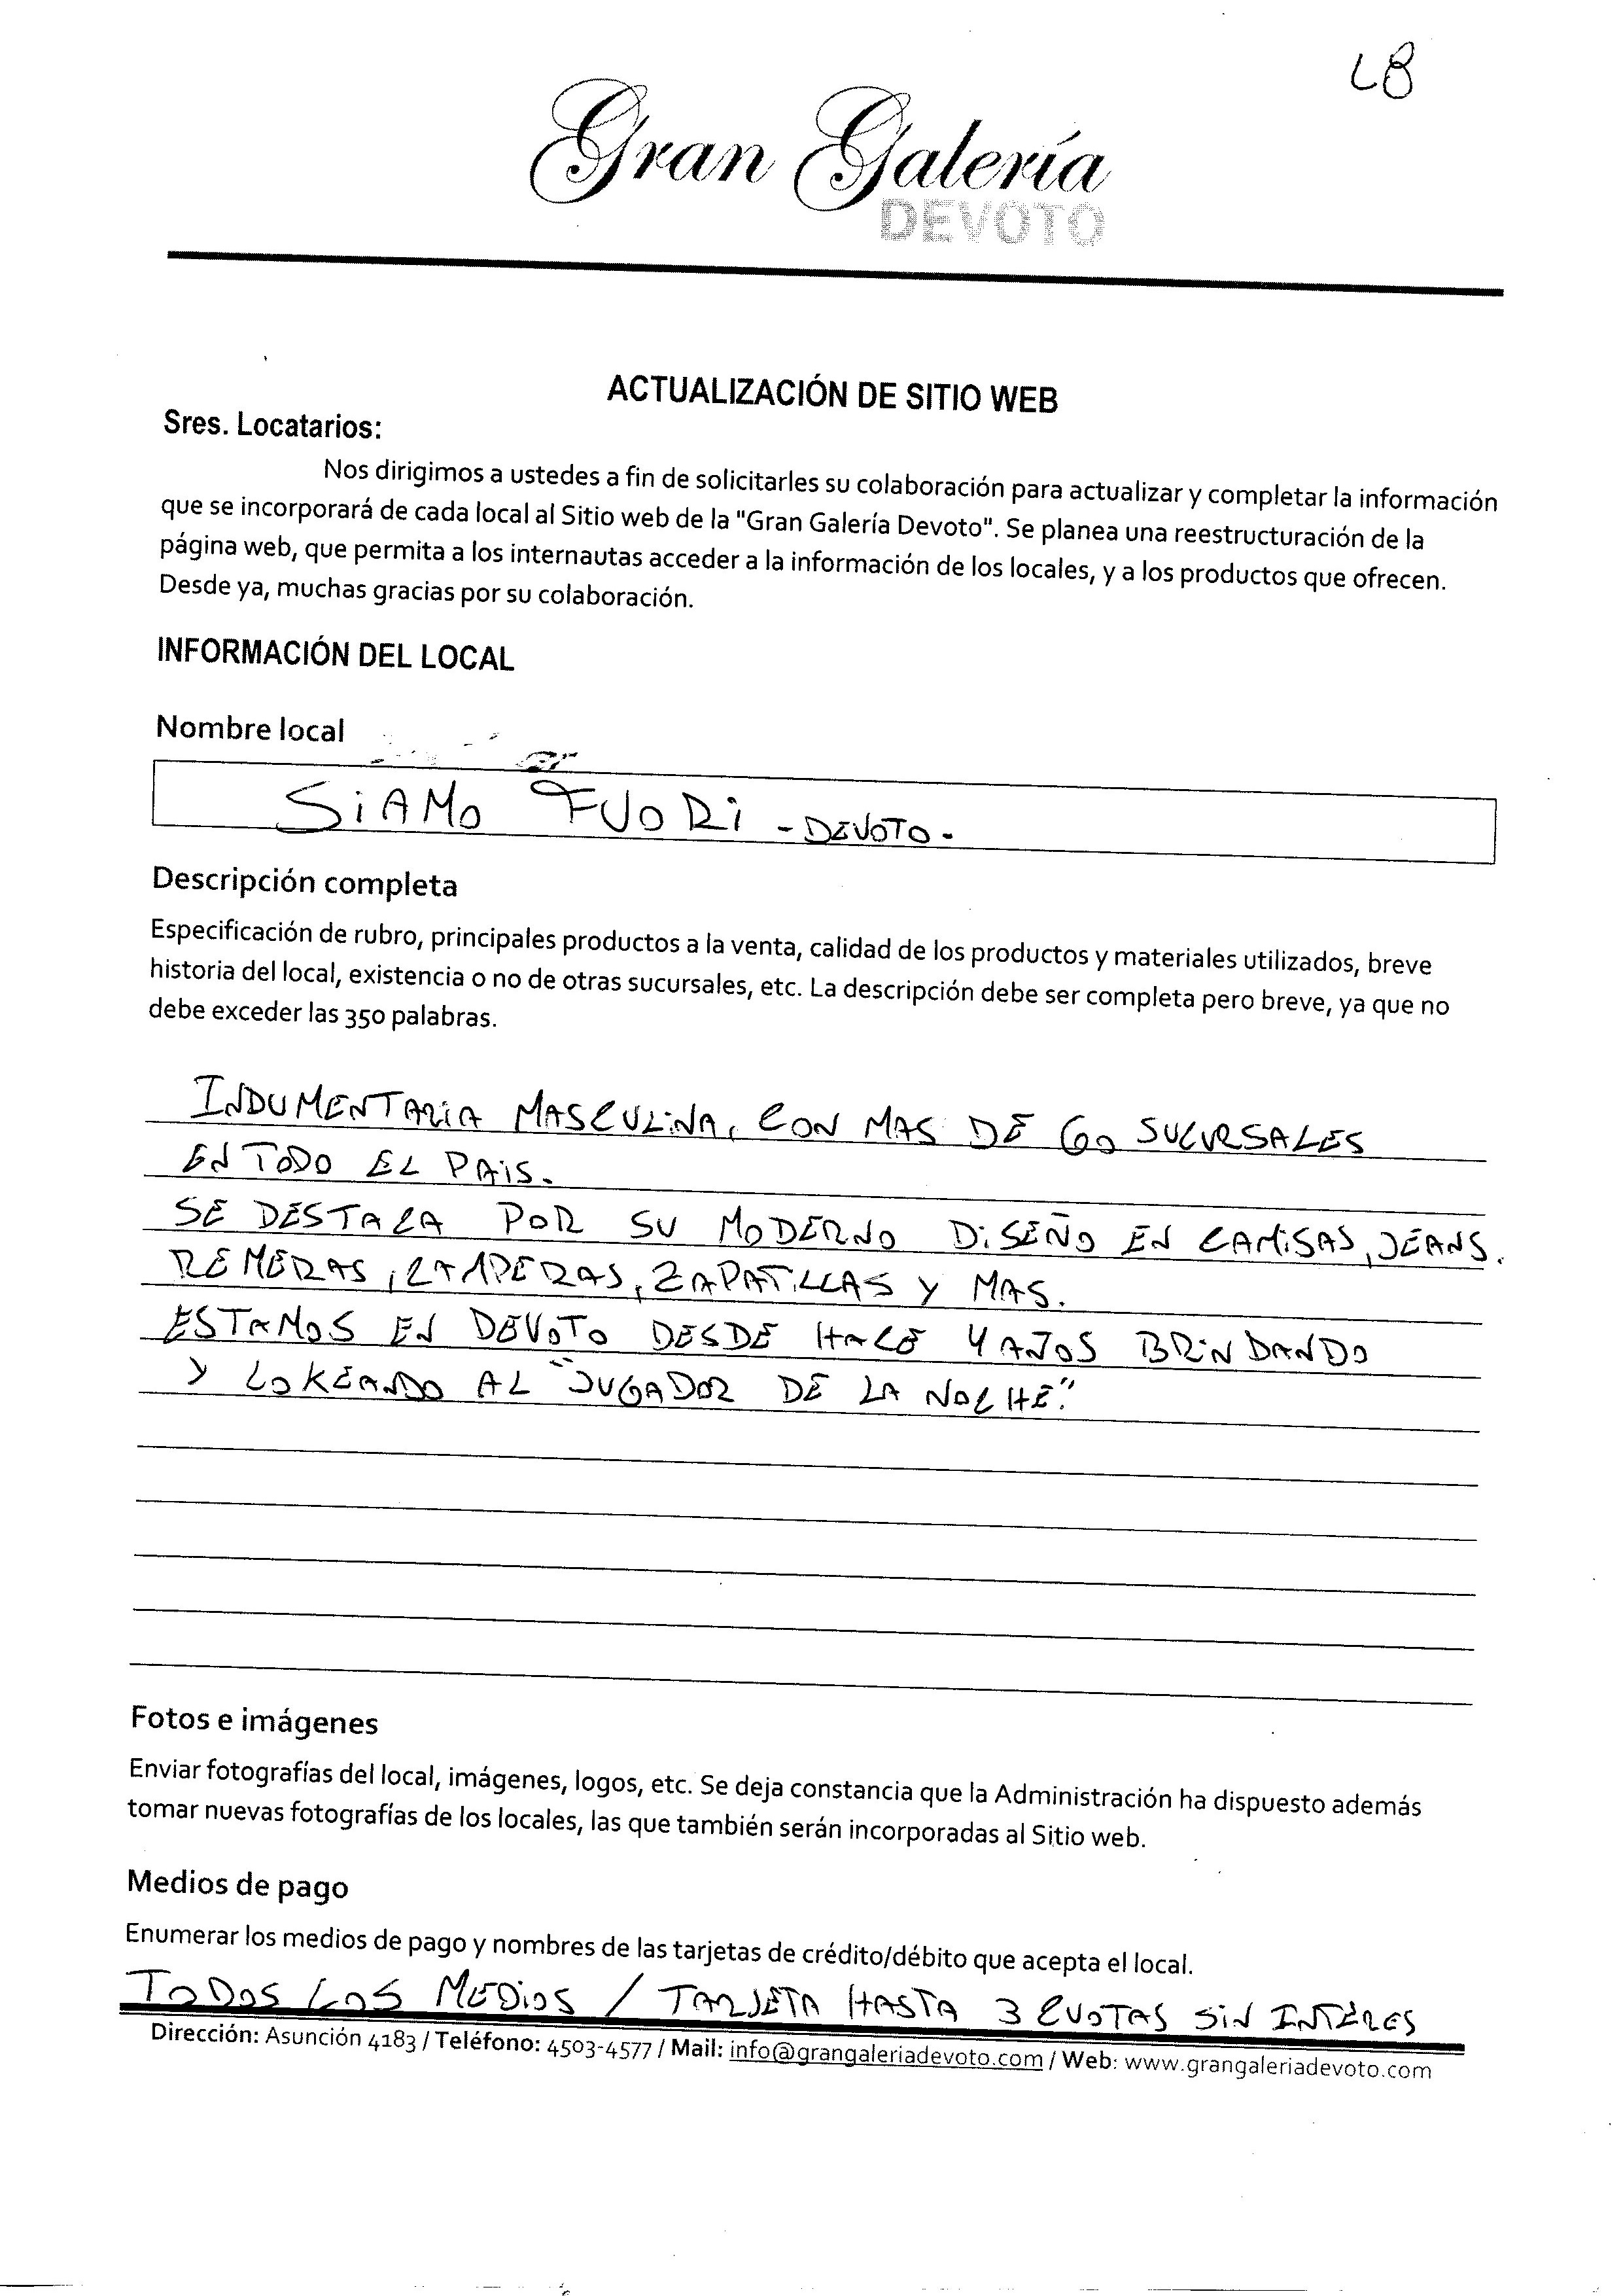 L8
Gran Galería
DEVOTO
ACTUALIZACIÓN DE SITIO WEB
Sres. Locatarios:
Nos dirigimos a ustedes a fin de solicitarles su colaboración para actualizar y completar la información
que se incorporará de cada local al Sitio web de la "Gran Galería Devoto". Se planea una reestructuración de la
página web, que permita a los internautas acceder a la información de los locales, y a los productos que ofrecen.
Desde ya, muchas gracias por su colaboración.
INFORMACIÓN DEL LOCAL
Nombre local
SiAMO FUORi - DEVOTO -
Descripción completa
Especificación de rubro, principales productos a la venta, calidad de los productos y materiales utilizados, breve
historia del local, existencia o no de otras sucursales, etc. La descripción debe ser completa pero breve, ya que no
debe exceder las 350 palabras.
INDUMENTARIA MASCULINA, CON MAS DE 60 SUCURSALES
EN TODO EL PAIS.
SE DESTACA POR SU MODERNO DISEÑO EN CAMISAS, JEANS.
REMERAS, CAMPERAS, ZAPATILLAS Y MAS.
ESTAMOS EN DEVOTO DESDE HACE 4 AÑOS BRINDANDO
Y LOKEANDO AL "JUGADOR DE LA NOCHE."
Fotos e imágenes
Enviar fotografías del local, imágenes, logos, etc. Se deja constancia que la Administración ha dispuesto además
tomar nuevas fotografías de los locales, las que también serán incorporadas al Sitio web.
Medios de pago
Enumerar los medios de pago y nombres de las tarjetas de crédito/débito que acepta el local.
TODOS LOS MEDIOS / TARJETA HASTA 3 CUOTAS SIN INTERES
Dirección: Asunción 4183 / Teléfono: 4503-4577 / Mail: info@grangaleriadevoto.com / Web: www.grangaleriadevoto.com